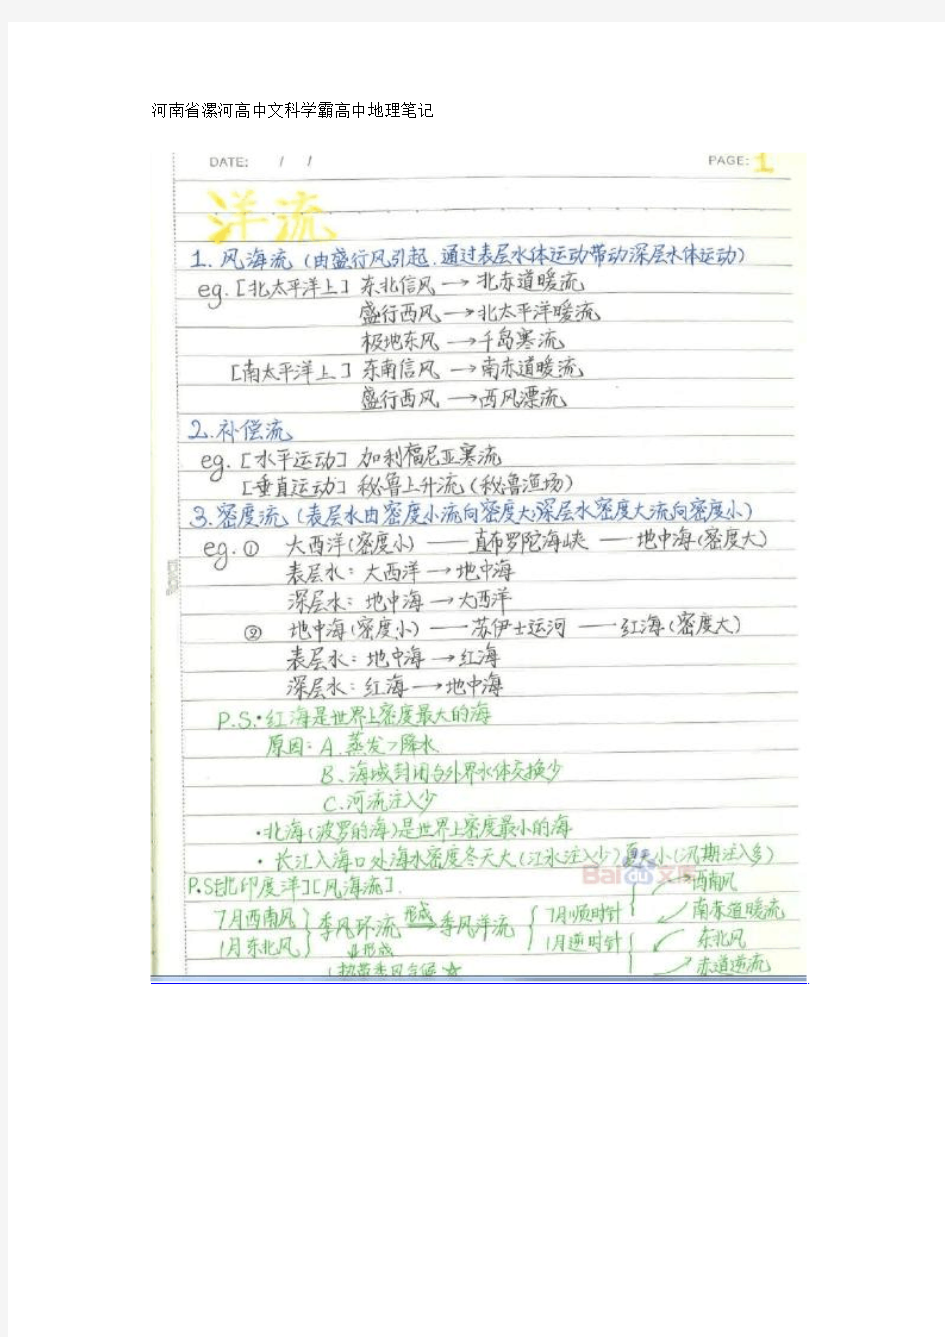 河南省漯河高中文科学霸高中地理笔记
DATE: / / PAGE: 1
洋流
1. 风海流 (由盛行风引起.通过表层水体运动带动深层水体运动)
eg. [北太平洋上] 东北信风 → 北赤道暖流
盛行西风 → 北太平洋暖流
极地东风 → 千岛寒流
[南太平洋上] 东南信风 → 南赤道暖流
盛行西风 → 西风漂流
2. 补偿流
eg. [水平运动] 加利福尼亚寒流
[垂直运动] 秘鲁上升流 (秘鲁渔场)
3. 密度流 (表层水由密度小流向密度大;深层水密度大流向密度小)
eg. ① 大西洋(密度小) — 直布罗陀海峡 — 地中海(密度大)
表层水: 大西洋 → 地中海
深层水: 地中海 → 大西洋
② 地中海(密度小) — 苏伊士运河 — 红海(密度大)
表层水: 地中海 → 红海
深层水: 红海 → 地中海
P.S.·红海是世界上密度最大的海
原因: A. 蒸发>降水
B、海域封闭与外界水体交换少
C.河流注入少
·北海(波罗的海)是世界上密度最小的海
·长江入海口处海水密度冬天大(江水注入少)夏天小(汛期注入多)
Bai du 文库
P.S[北印度洋][风海流].
西南风
7月西南风 季风环流 形成→ 季风洋流 7月顺时针 南赤道暖流
1月东北风 1月逆时针 东北风
⇓形成 赤道逆流
热带季风气候 ☆